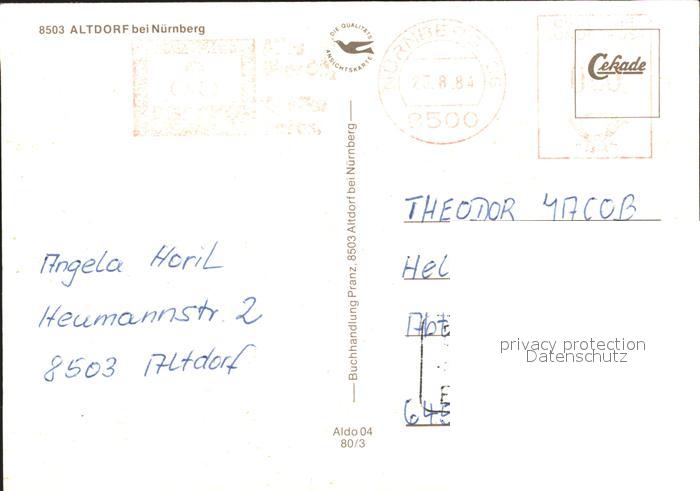 8503 ALTDORF bei Nürnberg
DIE QUALITÄTS
ANSICHTSKARTE
NÜRNBERG
8.84
8500
Cekade
Buchhandlung Pranz, 8503 Altdorf bei Nürnberg
Angela Horil
Heumannstr. 2
8503 Altdorf
THEODOR YACOB
Hel
Abt
privacy protection
Datenschutz
Aldo 04
80/3